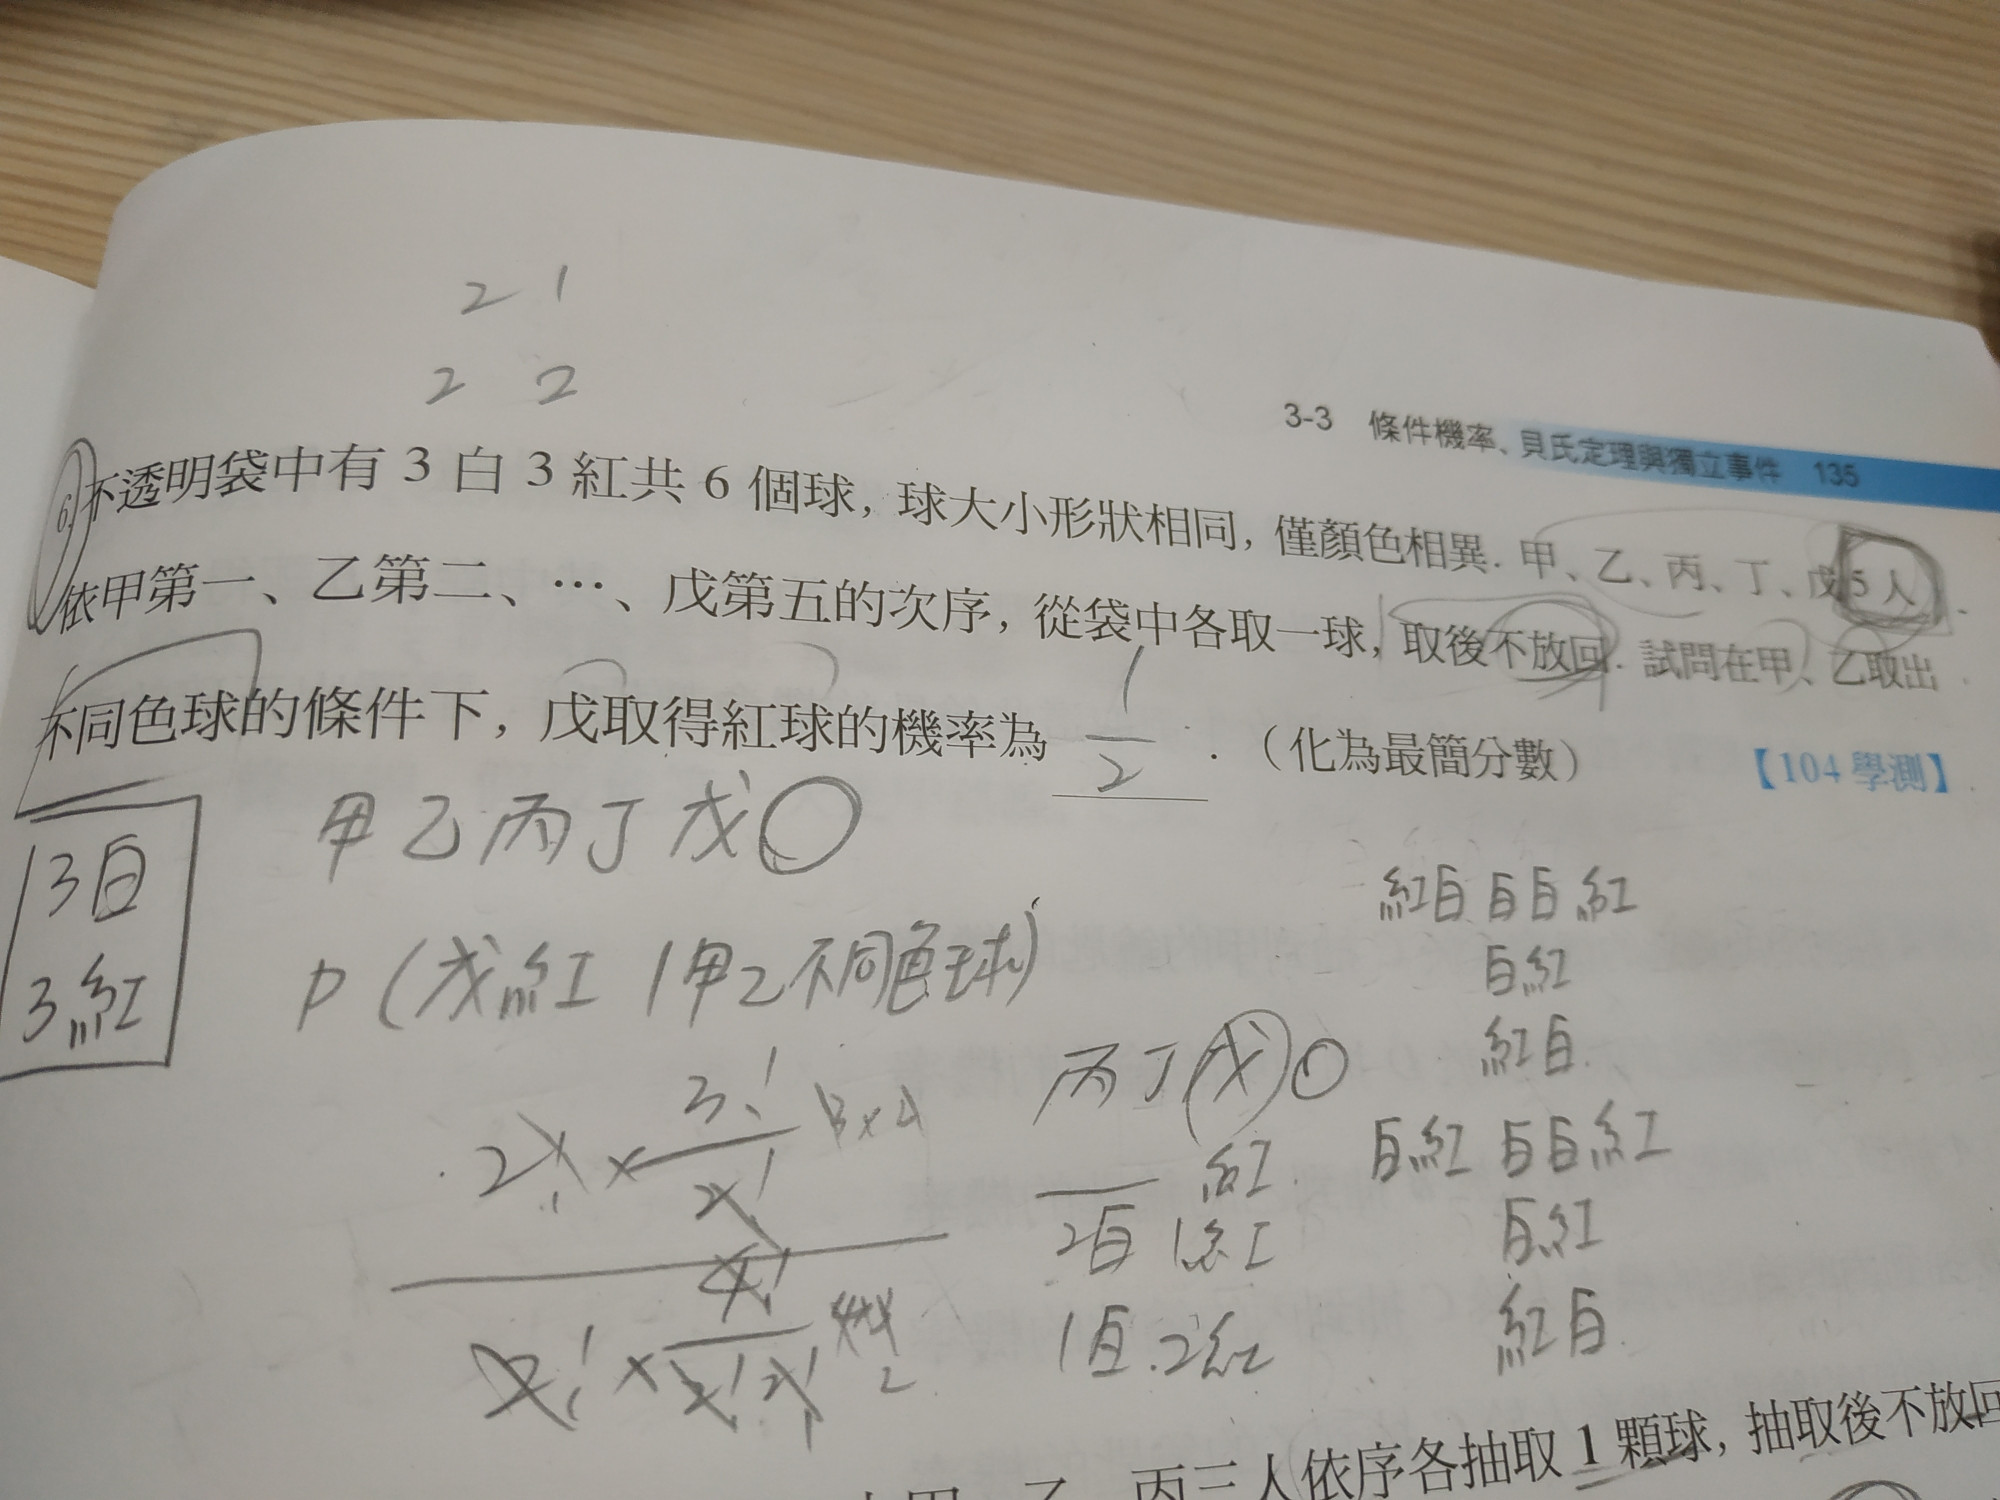 2 1
2 2
3-3 條件機率、貝氏定理與獨立事件 135
6. 不透明袋中有 3 白 3 紅共 6 個球, 球大小形狀相同, 僅顏色相異. 甲、乙、丙、丁、戊 5 人
依甲第一、乙第二、…、戊第五的次序, 從袋中各取一球, 取後不放回. 試問在甲、乙取出
不同色球的條件下, 戊取得紅球的機率為 1/2 .（化為最簡分數） 【104 學測】
甲乙丙丁戊○
3白
3紅
P(戊紅|甲乙不同色球)
2! × 3!/2!
2! × 4!/2!2!
丙丁戊○
紅
2白 1紅
1白 2紅
紅白 白白紅
白紅
紅白
白紅 白白紅
白紅
紅白
丙三人依序各抽取 1 顆球, 抽取後不放回